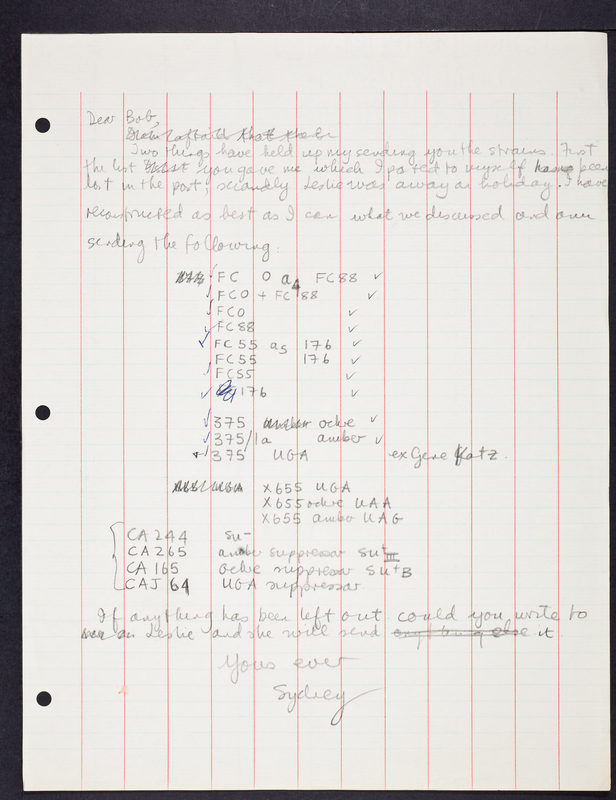 Dear Bob,
Two things have held up my sending you the strains. First
the list you gave me which I posted to myself has been
lost in the post; secondly Leslie was away on holiday. I have
reconstructed as best as I can what we discussed and am
sending the following:
FC 0 a4 FC88 ✓
✓ FC0 + FC 88 ✓
✓ FC0 ✓
✓ FC88 ✓
✓ FC55 a5 176 ✓
FC55 176 ✓
✓ FC55 ✓
✓ 176 ✓
✓ 375 ochre ✓
✓ 375/1a amber ✓
✓ 375 UGA ex Gene Katz.
X655 UGA
X655 ochre UAA
X655 amber UAG
CA 244 su-
CA 265 amber suppressor su+III
CA 165 ochre suppressor su+B
CAJ 64 UGA suppressor
If anything has been left out could you write to
Leslie and she will send anything else it.
Yours ever
Sydney